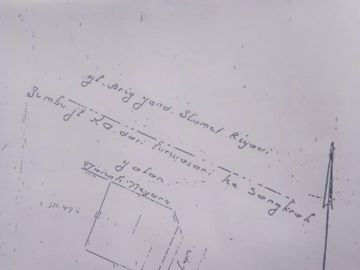 jl. Brig yend Slamet Riyadi
Sumbu jl KA dari Purwosari ke Sangkrah
jalan
Tanah Negara